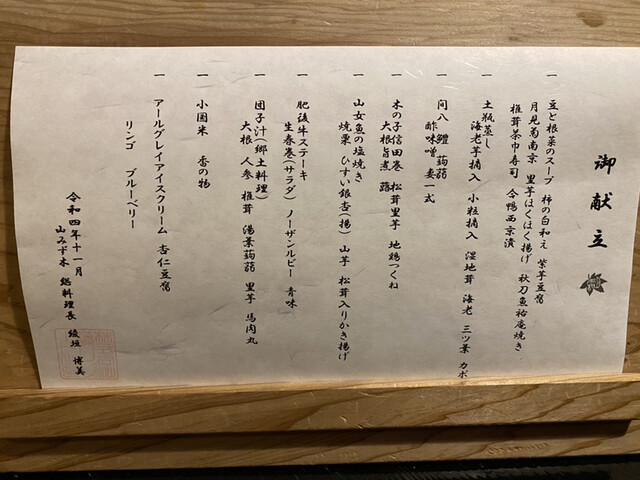 御献立
一 豆と根菜のスープ 柿の白和え 紫芋豆腐
月見菊南京 里芋ほくほく揚げ 秋刀魚祐庵焼き
椎茸茶巾寿司 合鴨西京漬
一 土瓶蒸し
海老芋摘入 小粒摘入 湿地茸 海老 三ツ葉 カボ
一 間八 鱧 蒟蒻
酢味噌 妻一式
一 木の子信田巻 松茸里芋 地鶏つくね
大根旨煮 蕗
一 山女魚の塩焼き
焼栗 ひすい銀杏(揚) 山芋 松茸入りかき揚げ
一 肥後牛ステーキ
生春巻(サラダ) ノーザンルビー 青味
一 団子汁(郷土料理)
大根 人参 椎茸 湯葉蒟蒻 里芋 馬肉丸
一 小国米 香の物
一 アールグレイアイスクリーム 杏仁豆腐
リンゴ ブルーベリー
令和四年十一月
山みず木 総料理長 綾垣 博美